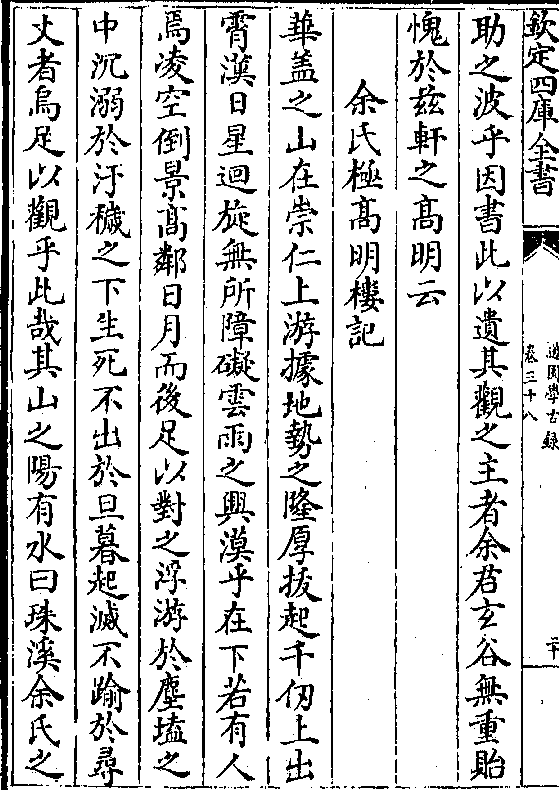 欽定四庫全書
道園學古錄
卷三十八
二十
助之波乎因書此以遺其觀之主者余君玄谷無重貽
愧於兹軒之髙明云
余氏極髙明樓記
華盖之山在崇仁上游據地勢之隆厚拔起千仞上出
霄漢日星迴旋無所障礙雲雨之興漠乎在下若有人
焉凌空倒景髙鄰日月而後足以對之浮游於塵壒之
中沉溺於汙穢之下生死不出於旦暮起滅不踰於尋
丈者烏足以觀乎此哉其山之陽有水曰珠溪余氏之